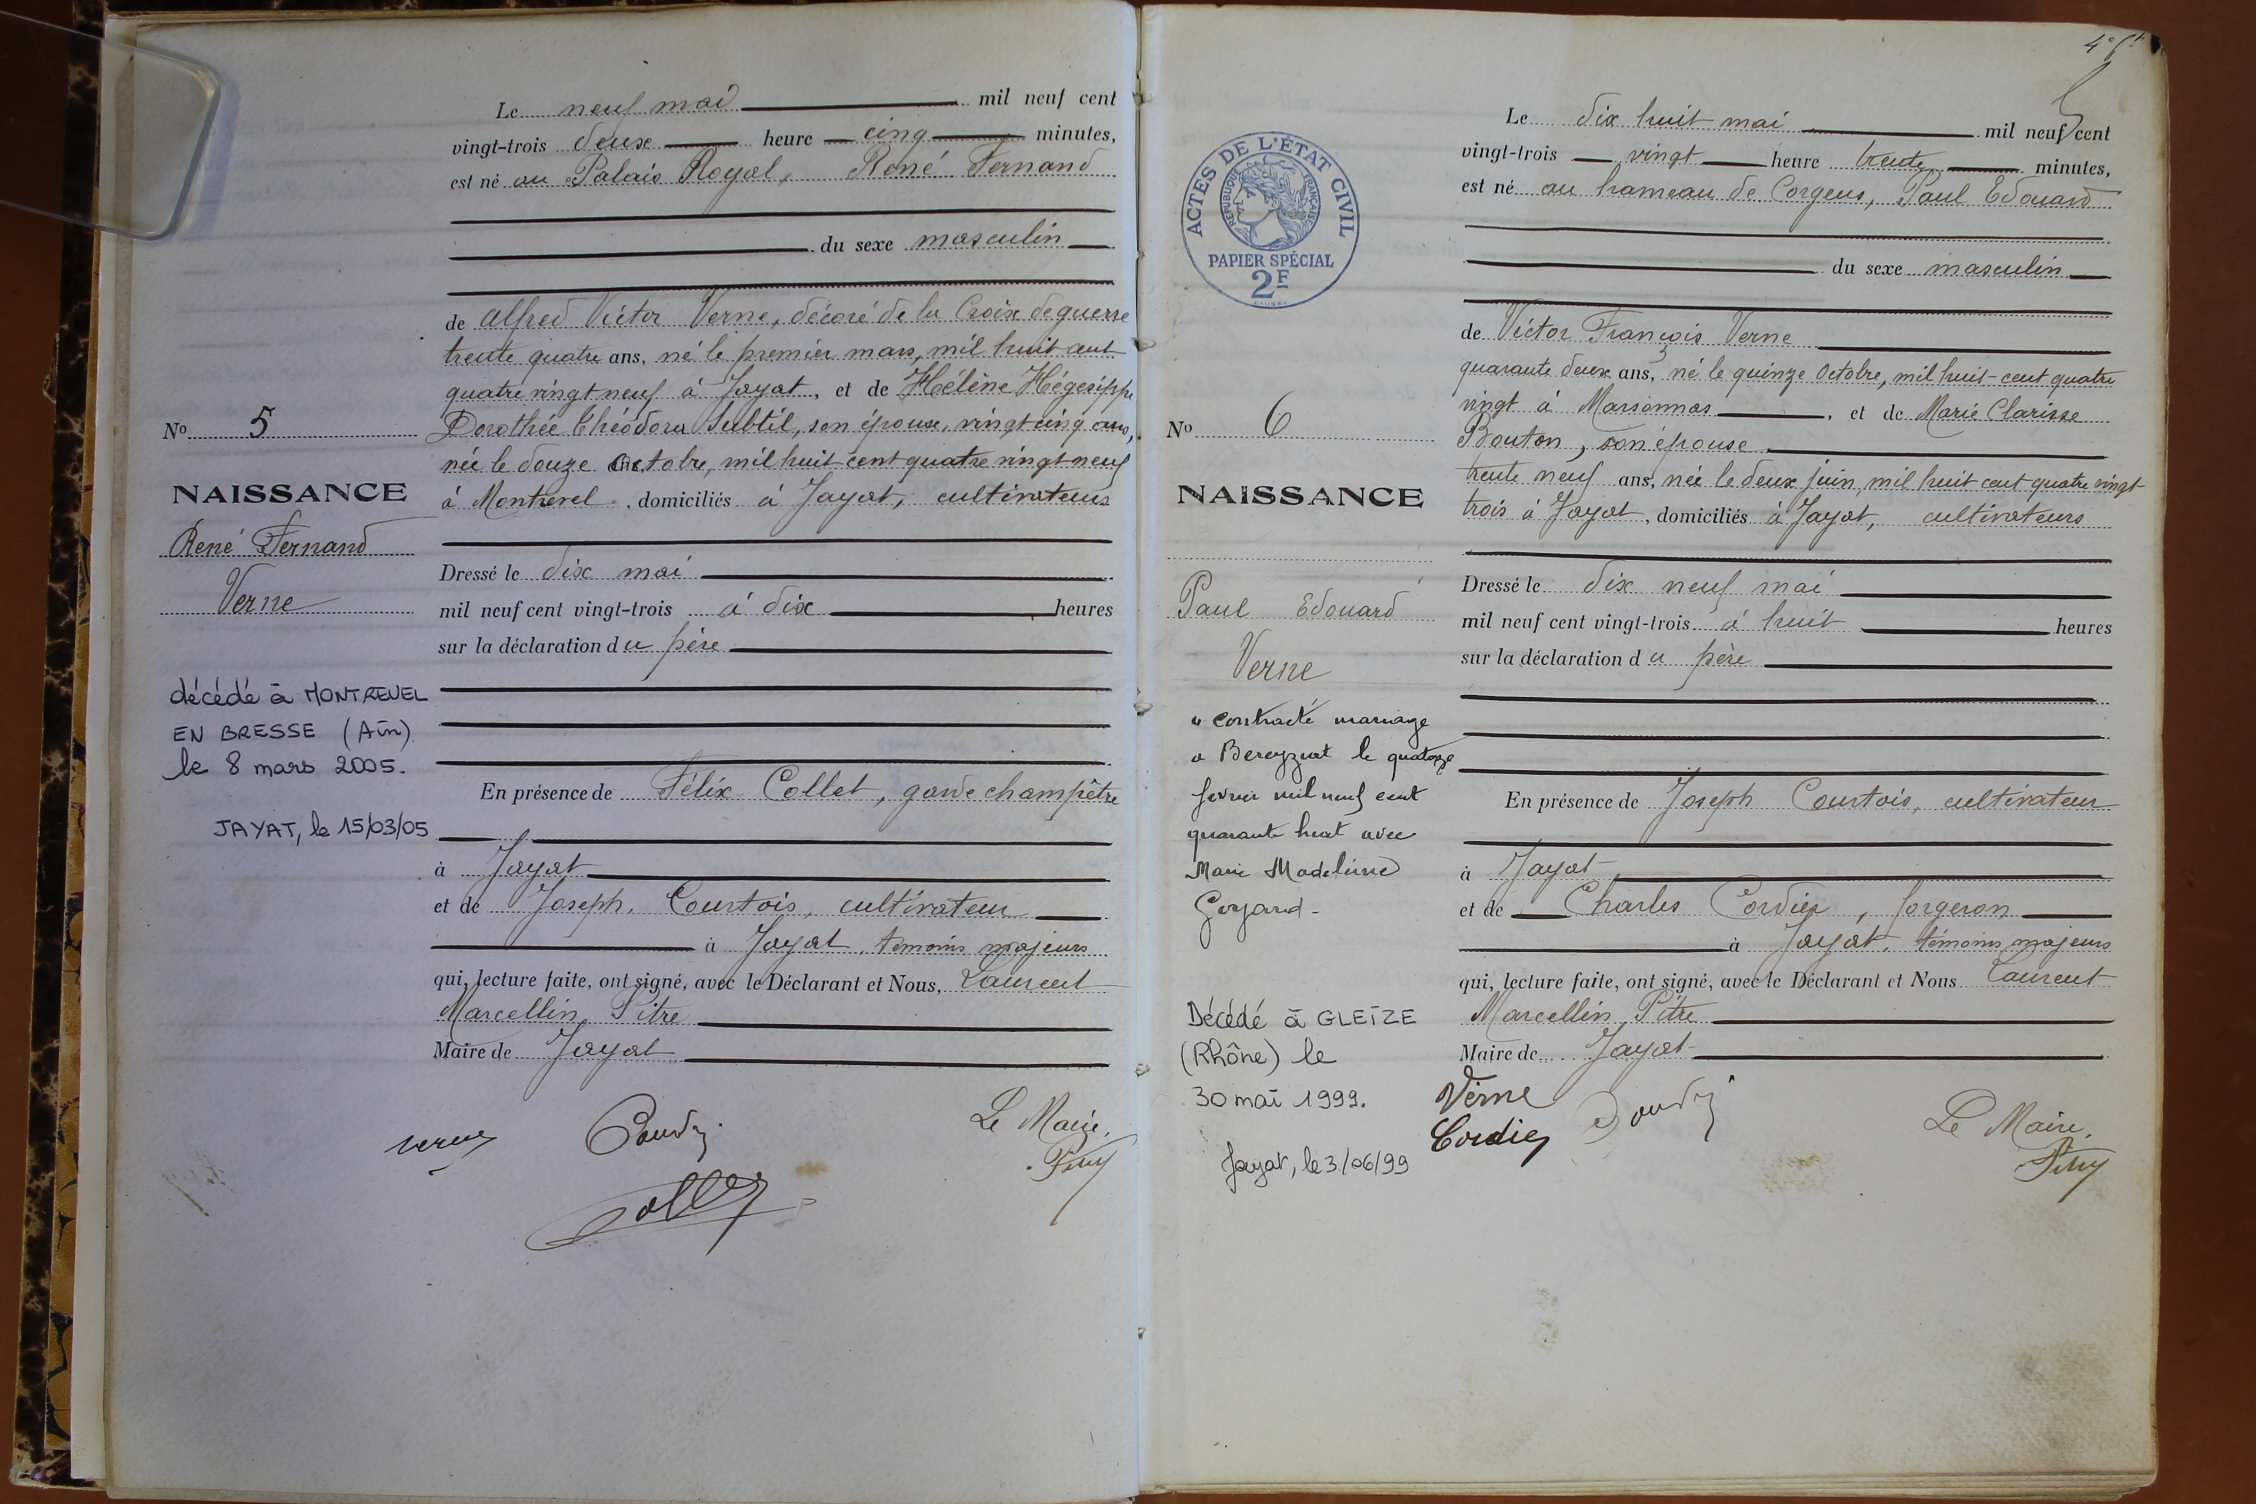 Le neuf mai mil neuf cent
vingt-trois deux heure cinq minutes,
est né au Palais Royal, René Fernand
du sexe masculin
de Alfred Victor Verne, décoré de la Croix de guerre
trente quatre ans, né le premier mars, mil huit cent
quatre vingt neuf à Jayat, et de Hélène Hégésippe
Dorothée Théodora Subtil, son épouse, vingt cinq ans,
née le douze octobre, mil huit cent quatre vingt neuf
à Montrevel, domiciliés à Jayat, cultivateurs
Dressé le dix mai
mil neuf cent vingt-trois à dix heures
sur la déclaration du père
En présence de Félix Collet, garde champêtre
à Jayat
et de Joseph Courtois, cultivateur
à Jayat, témoins majeurs
qui, lecture faite, ont signé, avec le Déclarant et Nous, Laurent
Marcellin Pitre
Maire de Jayat
Le Maire,
No 5
NAISSANCE
René Fernand
Verne
décédé à MONTREVEL
EN BRESSE (Ain)
le 8 mars 2005.
JAYAT, le 15/03/05
ACTES DE L'ÉTAT CIVIL
RÉPUBLIQUE FRANÇAISE
PAPIER SPÉCIAL
2F
Le dix huit mai mil neuf cent
vingt-trois vingt heure trente minutes,
est né au hameau de Corgeus, Paul Edouard
du sexe masculin
de Victor François Verne
quarante deux ans, né le quinze octobre, mil huit-cent quatre
vingt à Marsonnas, et de Marie Clarisse
Bouton, son épouse
trente neuf ans, née le deux juin, mil huit cent quatre vingt
trois à Jayat, domiciliés à Jayat, cultivateurs
Dressé le dix neuf mai
mil neuf cent vingt-trois à huit heures
sur la déclaration du père
En présence de Joseph Courtois, cultivateur
à Jayat
et de Charles Cordier, forgeron
à Jayat, témoins majeurs
qui, lecture faite, ont signé, avec le Déclarant et Nous Laurent
Marcellin Pitre
Maire de Jayat
Verne
Cordier
Le Maire,
No 6
NAISSANCE
Paul Edouard
Verne
a contracté mariage
a Bereyziat le quatorze
fevrier mil neuf cent
quarante huit avec
Marie Madeleine
Goyard
Décédé à GLEIZE
(Rhône) le
30 mai 1999.
Jayat, le 3/06/99